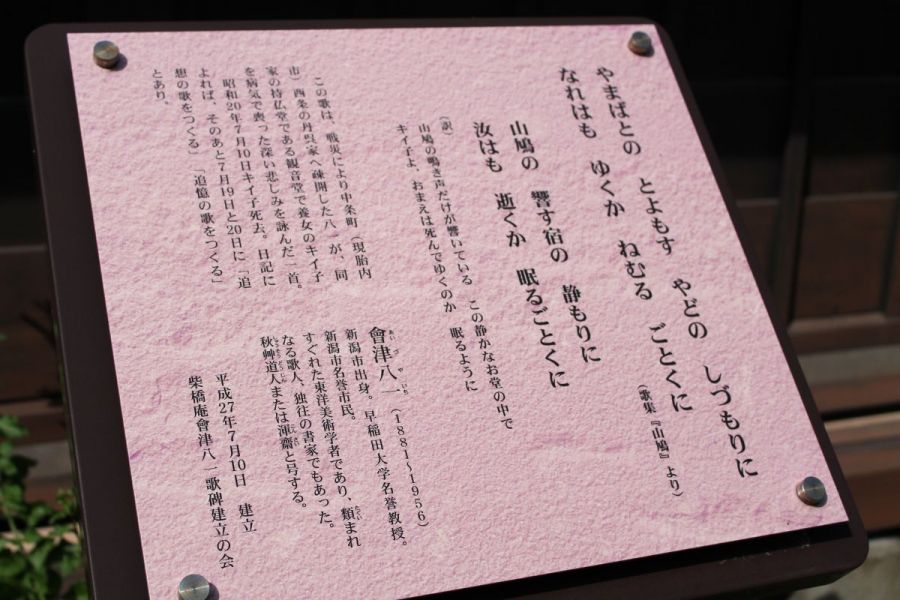 やまばとの とよもす やどの しづもりに
なれはも ゆくか ねむる ごとくに
(歌集『山鳩』より)
山鳩の 響す宿の 静もりに
汝はも 逝くか 眠るごとくに
(訳)
山鳩の鳴き声だけが響いている この静かなお堂の中で
キイ子よ、おまえは死んでゆくのか 眠るように
この歌は、戦災により中条町(現胎内
市)西条の丹呉家へ疎開した八一が、同
家の持仏堂である観音堂で養女のキイ子
を病気で喪った深い悲しみを詠んだ一首。
昭和20年7月10日キイ子死去。日記に
よれば、そのあと7月19日と20日に「追
想の歌をつくる」「追憶の歌をつくる」
とあり。
會津八一(1881~1956)
新潟市出身。早稲田大学名誉教授。
新潟市名誉市民。
すぐれた東洋美術学者であり、類まれ
なる歌人、独往の書家でもあった。
秋艸道人または渾齋と号する。
平成27年7月10日 建立
柴橋庵會津八一歌碑建立の会